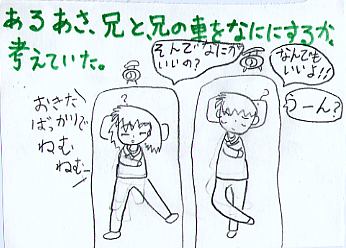 あるあさ、兄と兄の車をなににするか、
考えていた。
そんでなにが
いいの?
なんでも
いいよ!!
うーん?
おきた
ばっかりで
ねむ
ねむー
?
?